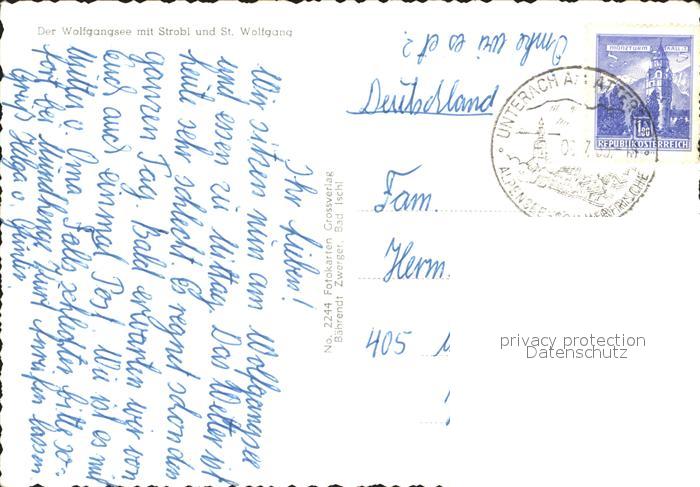 Der Wolfgangsee mit Strobl und St. Wolfgang
Ihr Lieben!
Wir sitzen nun am Wolfgangsee
und essen zu Mittag. Das Wetter ist
heute sehr schlecht. Es regnet schon den
ganzen Tag. Bald erwarten wir von
Euch auch einmal Post. Wie ist es mit
Mutter u. Oma. Falls schlechter, bitte so-
fort bei anrufen lassen
Gruß Helga u. Günter
No. 2244 Fotokarten Grossverlag
Bährendt Zwerger, Bad Ischl
Omke wie es ed?
Deutschland
Fam.
Herm.
405
MÜNZTURM HALL I. T.
1.80
REPUBLIK ÖSTERREICH
UNTERACH AM ATTERSEE
privacy protection
Datenschutz